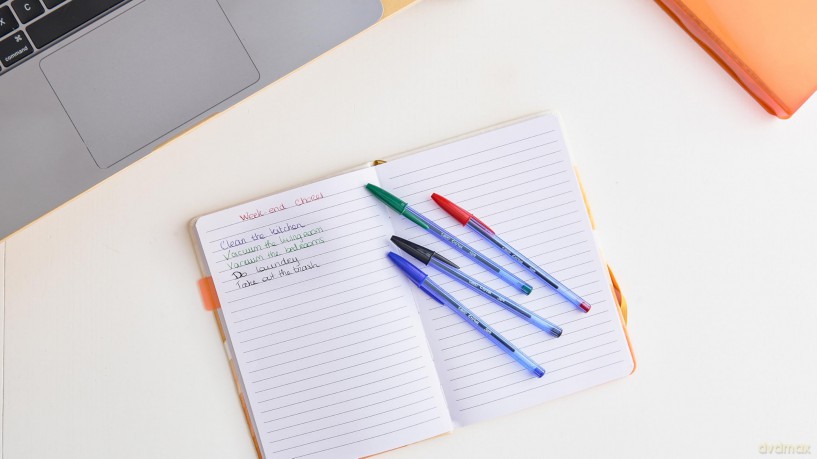 X
C
⌘
command
Week end Chores
Clean the kitchen
Vacuum the living room
Vacuum the bedrooms
Do laundry
Take out the trash
dvdmax